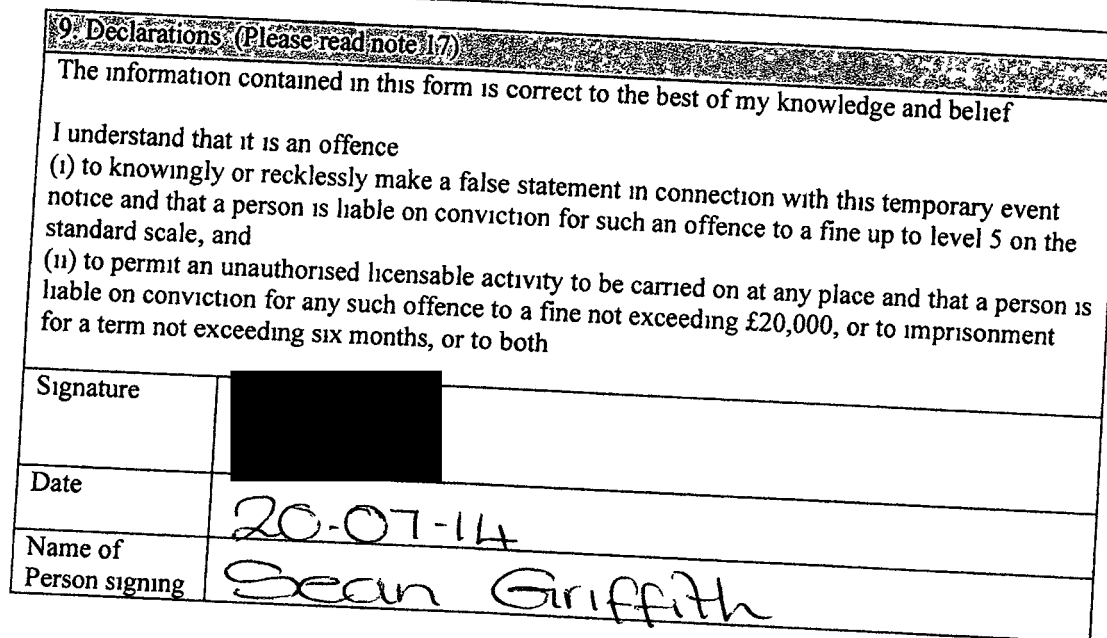 9. Declarations (Please read note 17)
The information contained in this form is correct to the best of my knowledge and belief
I understand that it is an offence
(i) to knowingly or recklessly make a false statement in connection with this temporary event
notice and that a person is liable on conviction for such an offence to a fine up to level 5 on the
standard scale, and
(ii) to permit an unauthorised licensable activity to be carried on at any place and that a person is
liable on conviction for any such offence to a fine not exceeding £20,000, or to imprisonment
for a term not exceeding six months, or to both
Signature
Date 20-07-14
Name of
Person signing Sean Griffith